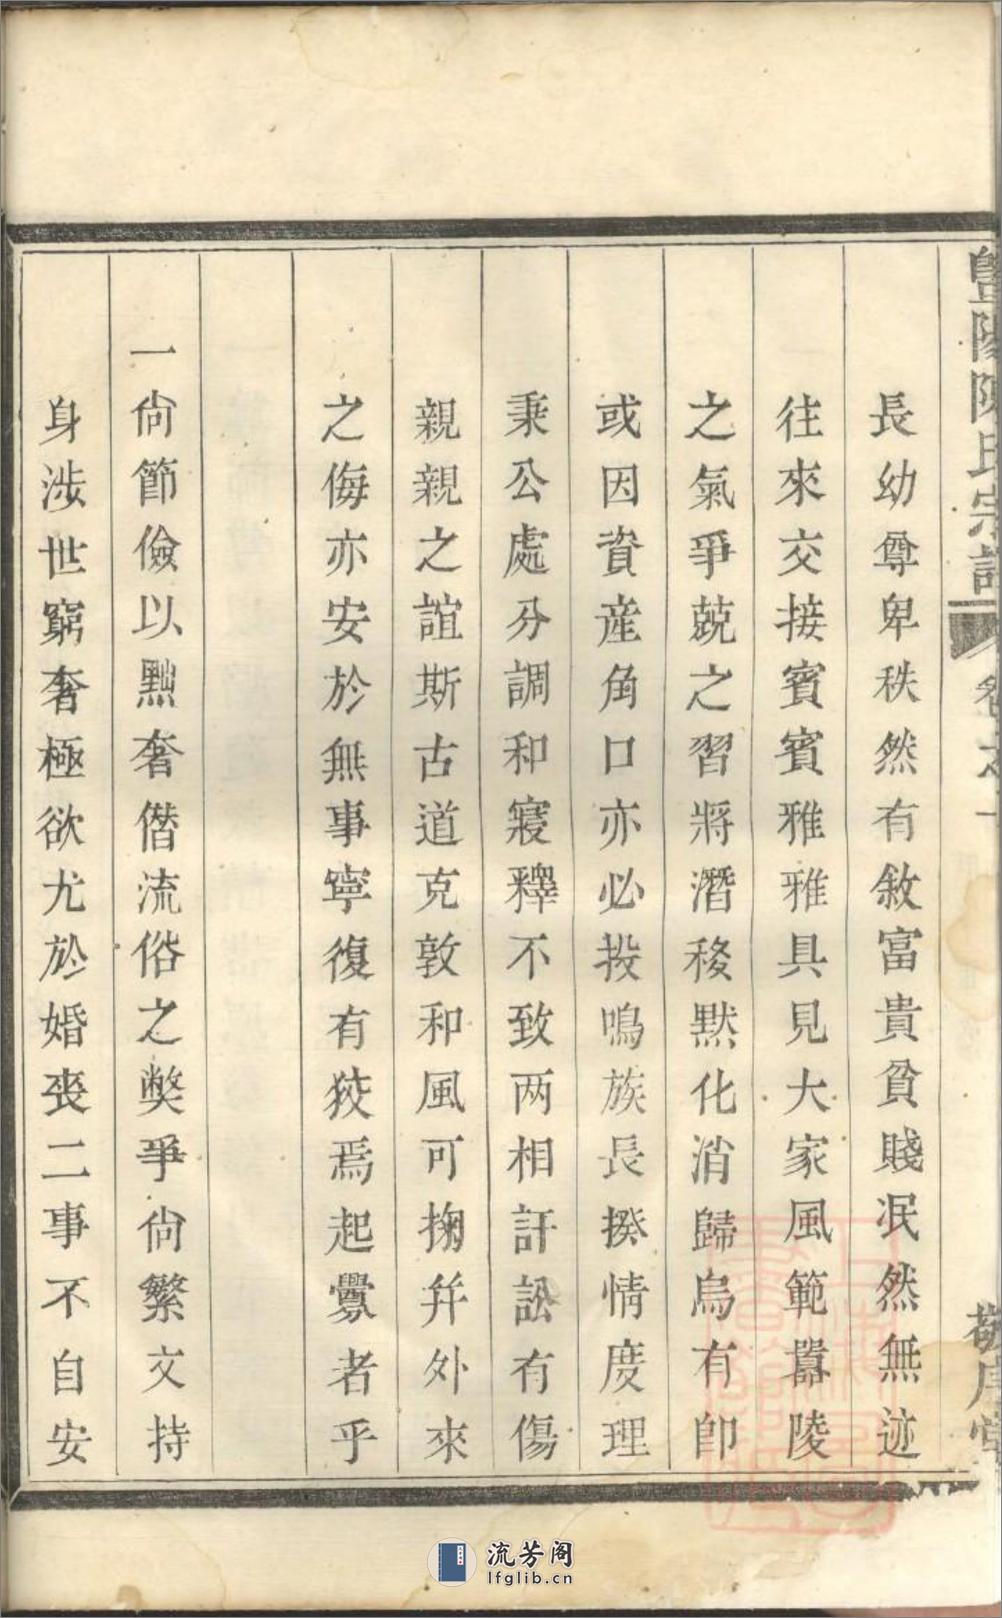 暨陽陳氏宗譜 卷之一 敬序堂
長幼尊卑秩然有敘富貴貧賤泯然無迹
往來交接賓賓雅雅具見大家風範囂陵
之氣爭競之習將潛移默化消歸烏有即
或因資產角口亦必投鳴族長揆情度理
秉公處分調和寢釋不致两相訐訟有傷
親親之誼斯古道克敦和風可掬并外來
之侮亦安於無事寧復有狡焉起釁者乎
一尙節儉以黜奢僭流俗之弊爭尙繁文持
身涉世窮奢極欲尤於婚喪二事不自安
流芳阁
lfglib.cn